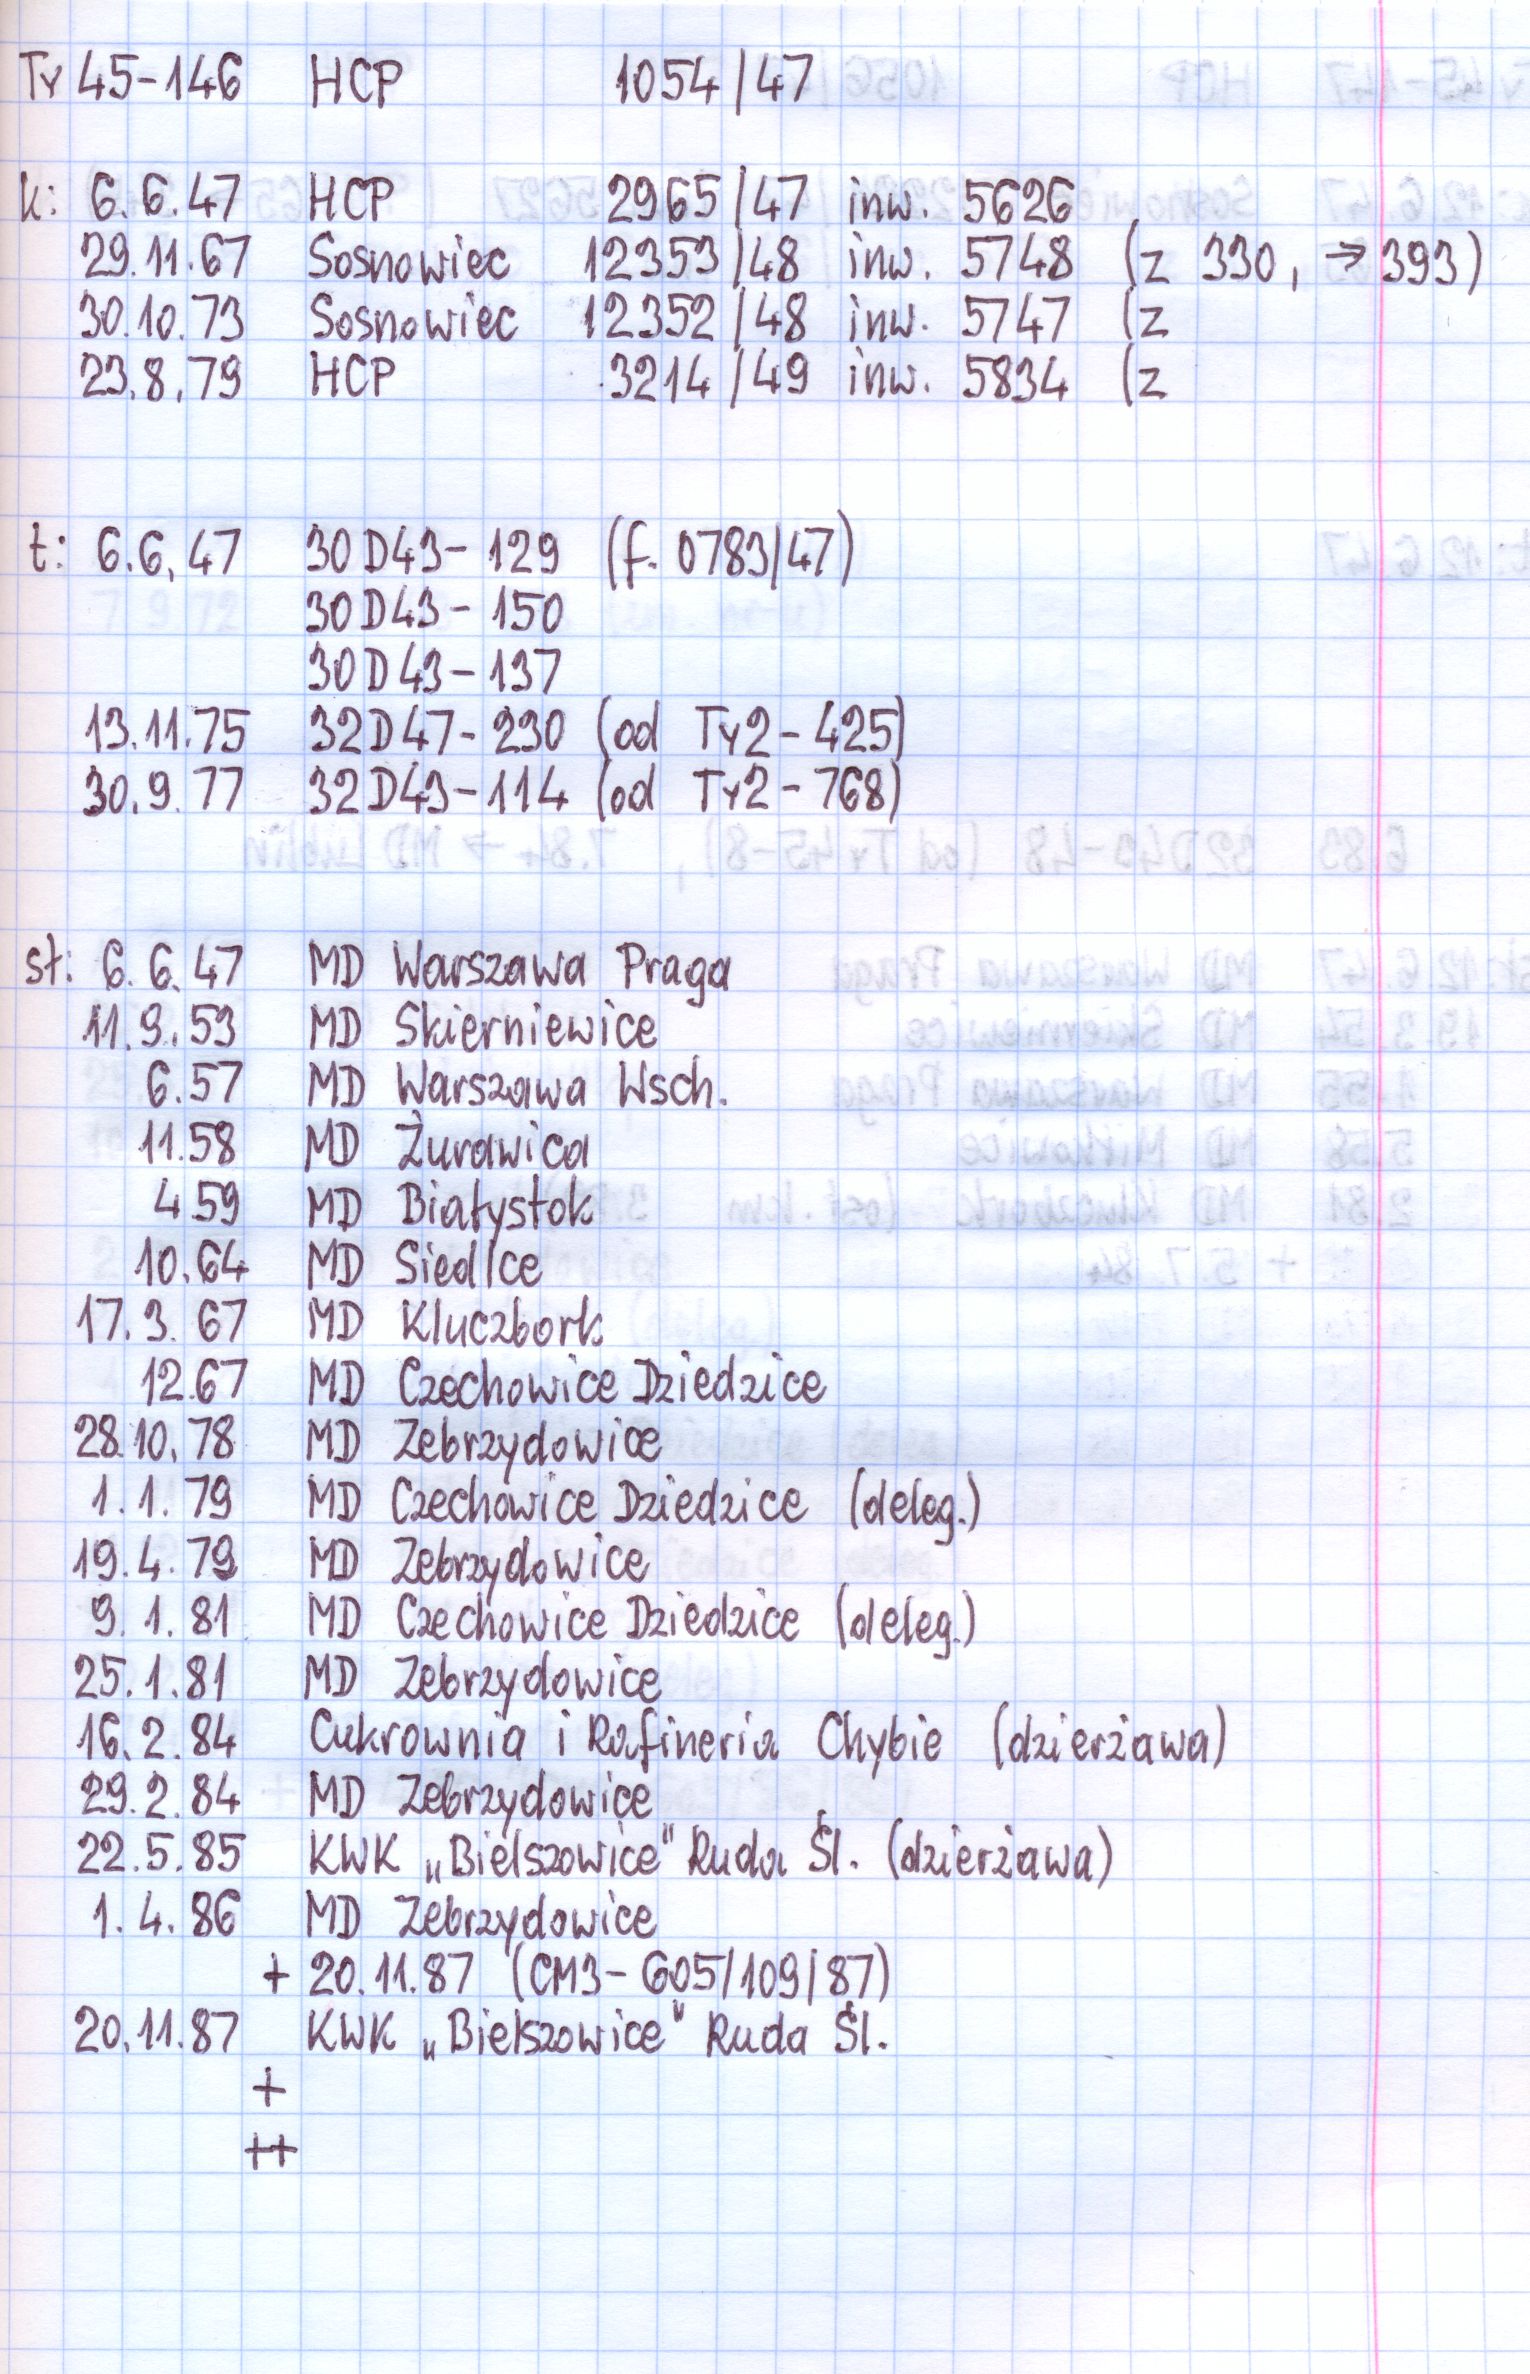 Ty 45-146 HCP 1054/47
k: 6.6.47 HCP 2965/47 inw. 5626
29.11.67 Sosnowiec 12353/48 inw. 5748 (z 330, → 393)
30.10.73 Sosnowiec 12352/48 inw. 5747 (z
23.8.79 HCP 3214/49 inw. 5834 (z
t: 6.6.47 30D43-129 (f. 0783/47)
30D43-150
30D43-137
13.11.75 32D47-230 (od Ty2-425)
30.9.77 32D43-114 (od Ty2-768)
st: 6.6.47 MD Warszawa Praga
11.9.53 MD Skierniewice
6.57 MD Warszawa Wsch.
11.58 MD Żurawica
4.59 MD Białystok
10.64 MD Siedlce
17.3.67 MD Kluczbork
12.67 MD Czechowice Dziedzice
28.10.78 MD Zebrzydowice
1.1.79 MD Czechowice Dziedzice (deleg.)
19.4.79 MD Zebrzydowice
9.1.81 MD Czechowice Dziedzice (deleg.)
25.1.81 MD Zebrzydowice
16.2.84 Cukrownia i Rafineria Chybie (dzierżawa)
29.2.84 MD Zebrzydowice
22.5.85 KWK „Bielszowice" Ruda Śl. (dzierżawa)
1.4.86 MD Zebrzydowice
+ 20.11.87 (CM3-605/109/87)
20.11.87 KWK „Bielszowice" Ruda Śl.
+
++